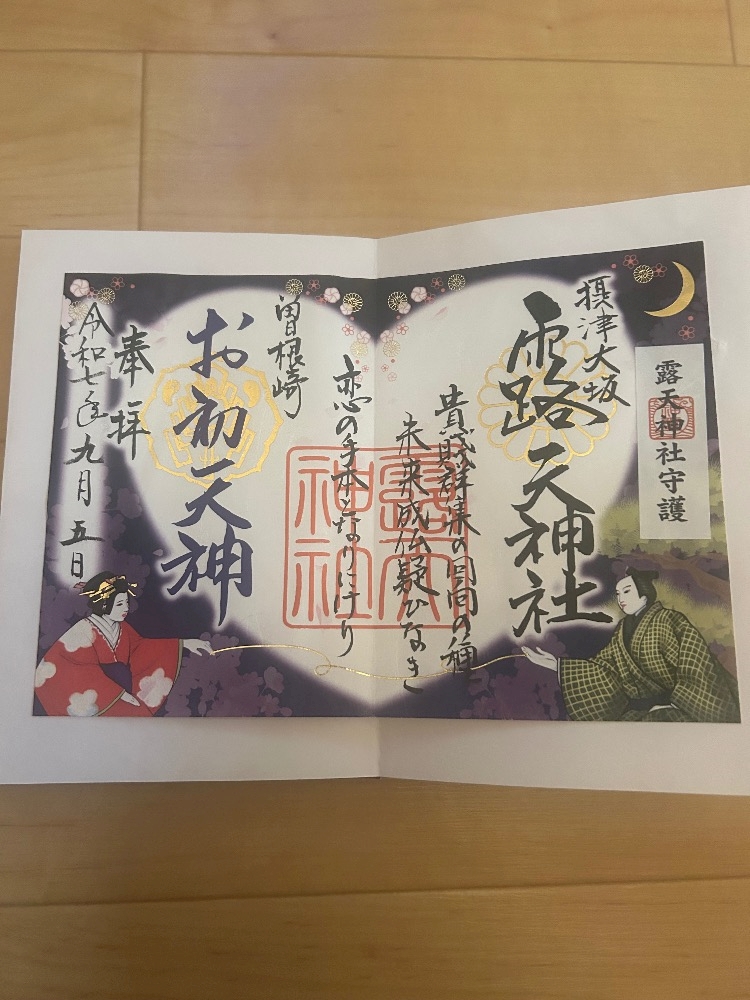 露天神社守護
摂津大坂
露天神社
貴賎群集の回向の種
未来成仏疑ひなき
恋の手本となりにけり
曽根崎
お初天神
奉拝
令和七年九月五日
露天
神社